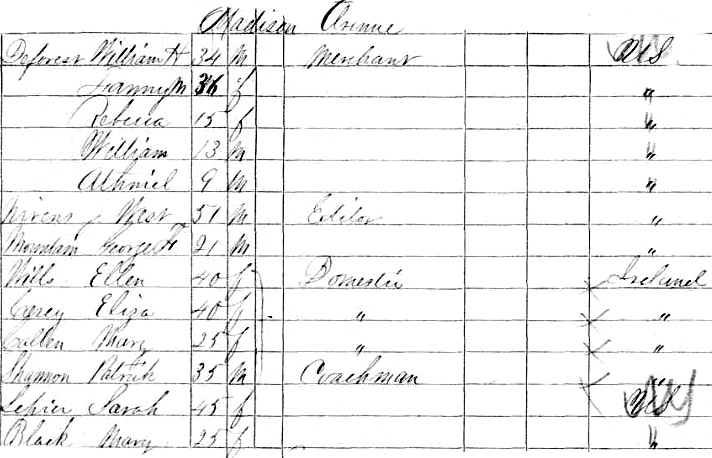 Madison Avenue
Deforest William H 34 M Merchant U.S
Fanny M 36 f "
Rebecca 15 f "
William 13 M "
Othniel 9 M "
West 51 M Editor "
Mountain George 21 M "
Mills Ellen 40 f Domestic Ireland
Carey Eliza 40 f " "
Cullen Mary 25 f " "
Shannon Patrick 35 M Coachman "
Sarah 45 f U.S
Black Mary 25 f "